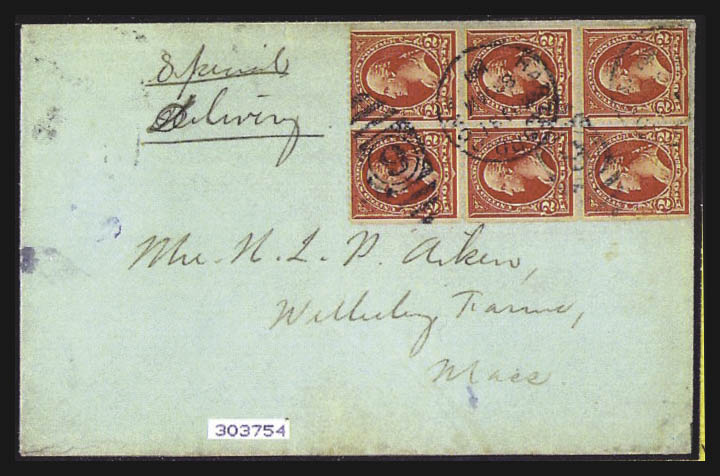 Special
Delivery
2 2 2
2 2 2
9
Mr. H. L. P. Aiken,
Wellesley Farms,
Mass
303754